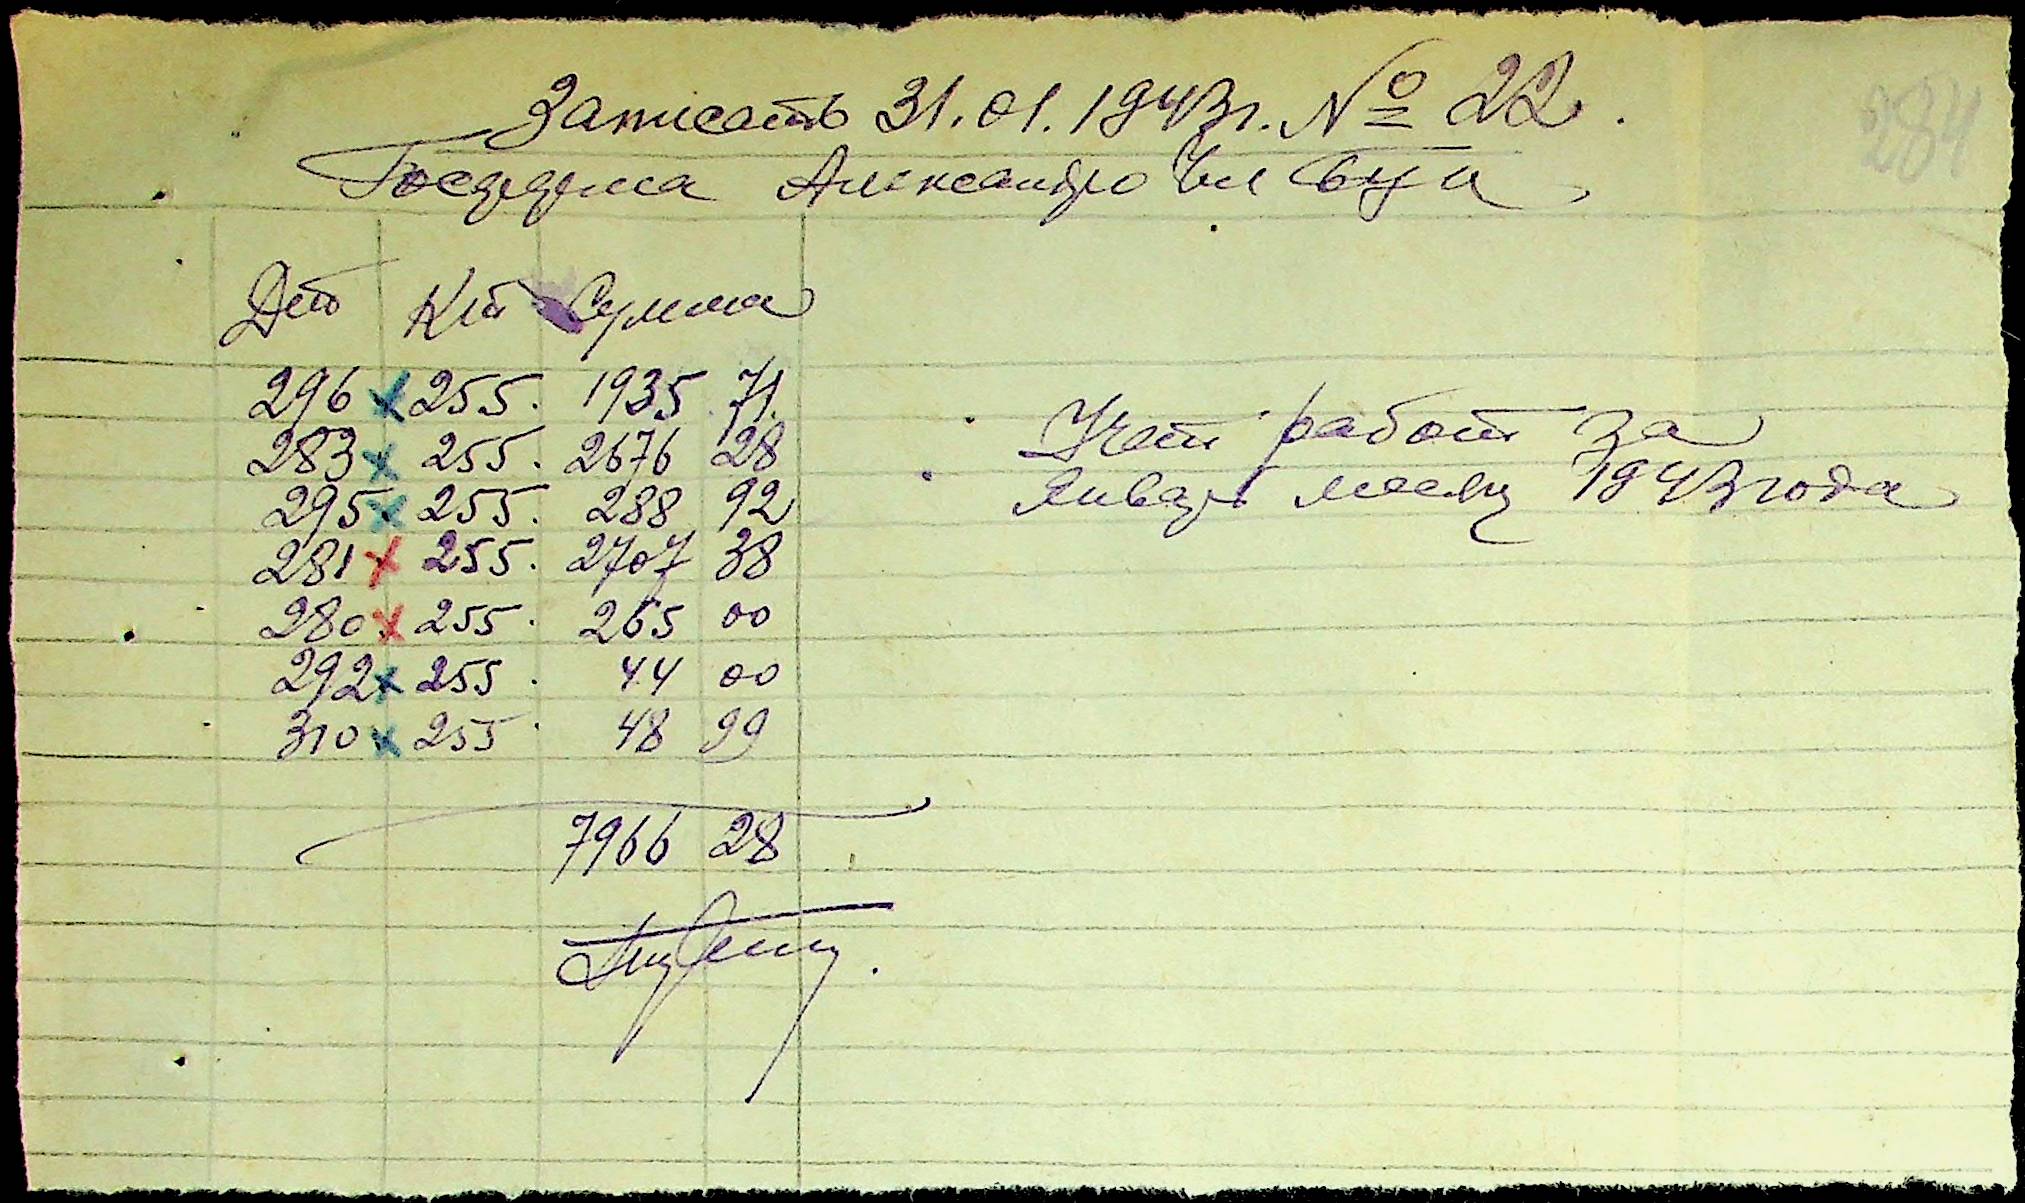 Записать 31.01.1943г. № 22.
284
Александро
Дт Кт Сумма
296 255. 1935 71.
283 255. 2676 28
295 255. 288 92
281 255. 2707 38
280 255. 265 00
292 255. 44 00
310 255 48 99
Учет работ за
январь месяц 1943 года
7966 28